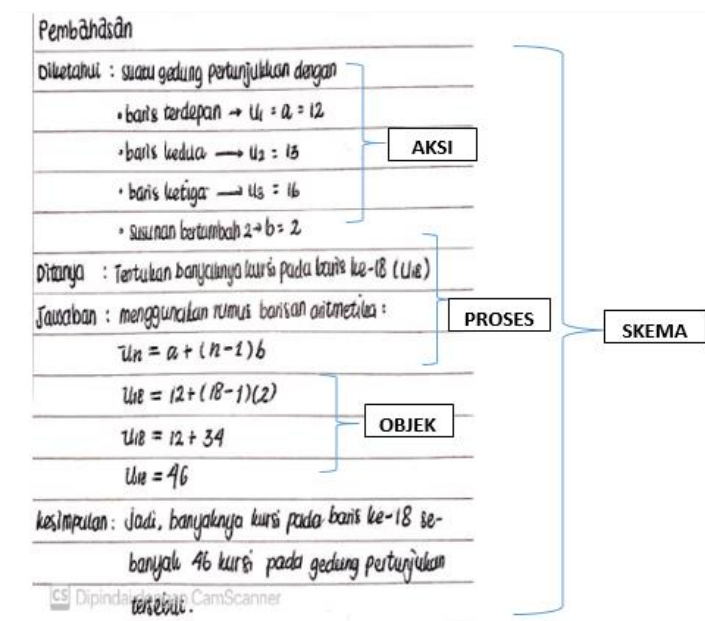 Pembahasan
Diketahui : suatu gedung pertunjukkan dengan
• baris terdepan → U₁ = a = 12
• baris kedua → U₂ = 13
• baris ketiga → U₃ = 16
• Susunan bertambah 2 → b = 2
AKSI
Ditanya : Tentukan banyaknya kursi pada baris ke-18 (U₁₈)
Jawaban : menggunakan rumus barisan aritmetika :
Un = a + (n-1)b
PROSES
SKEMA
U₁₈ = 12 + (18-1)(2)
U₁₈ = 12 + 34
U₁₈ = 46
OBJEK
kesimpulan : Jadi, banyaknya kursi pada baris ke-18 se-
banyak 46 kursi pada gedung pertunjukan
tersebut.
CS Dipindai dengan CamScanner